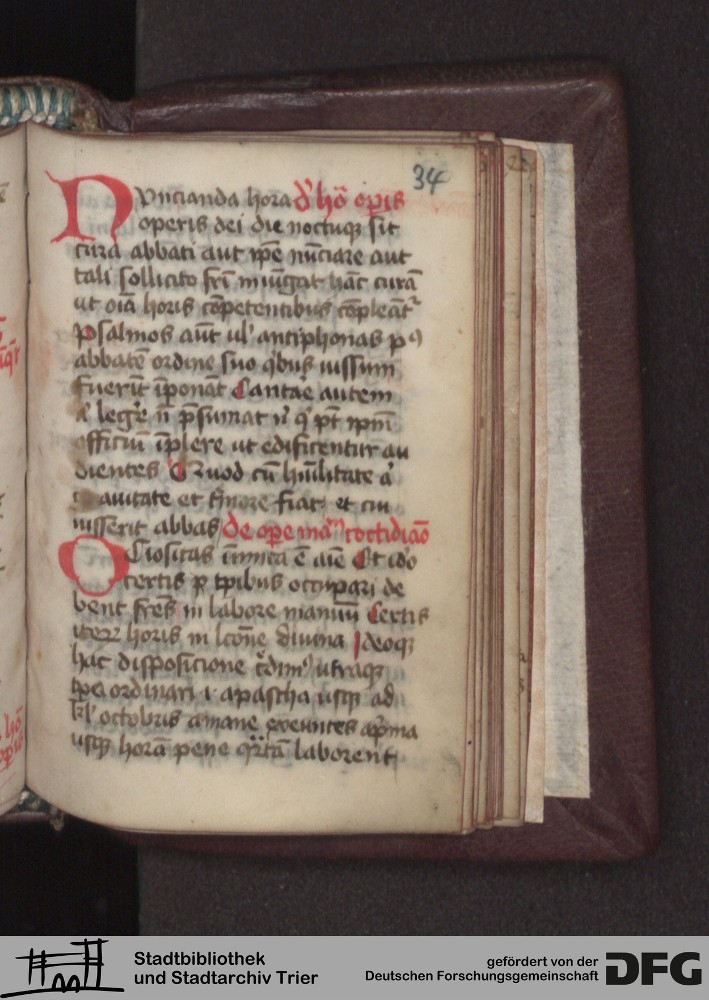 34
Nuncianda hora d' hō opis
operis dei die noctuqꝫ sit
cura abbati aut ip̄e nūciare aut
tali sollicito fr̄i iniūgat hāc curā
ut oīa horis cōpetentibus cōpleāt᷑
psalmos aūt ul' antiphonas pꝰ
abbatē ordine suo q'bus iussum
fuerit īponāt Cantare autem
a' lege n̄ p̄sumat n' q' pt ip̄m
officiū īplere ut edificentur au
dientes Quod cū hūilitate a'
auitate et t'more fiat et cui
iusserit abbas De ope manꝰ cottidiāo
Ociositas īimica ē aīe Et id'o
certis p tp̄ibus occupari de
bent fr̄es in labore manuū Certis
iteꝝ horis in lc̄one divina Ideoqꝫ
hac disposicione c̄dimꝰ utraqꝫ
tp̄a ordinari i· a pascha usqꝫ ad
kl' octobris a mane exeuntes a p'ma
usqꝫ horā pene q'rtā laborent
Stadtbibliothek
und Stadtarchiv Trier
gefördert von der
Deutschen Forschungsgemeinschaft
DFG